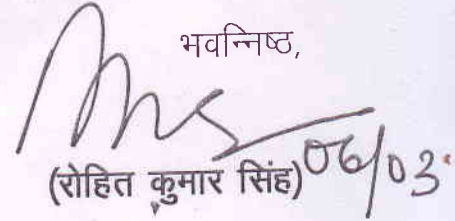 भवन्निष्ठ,
(रोहित कुमार सिंह) 06/03